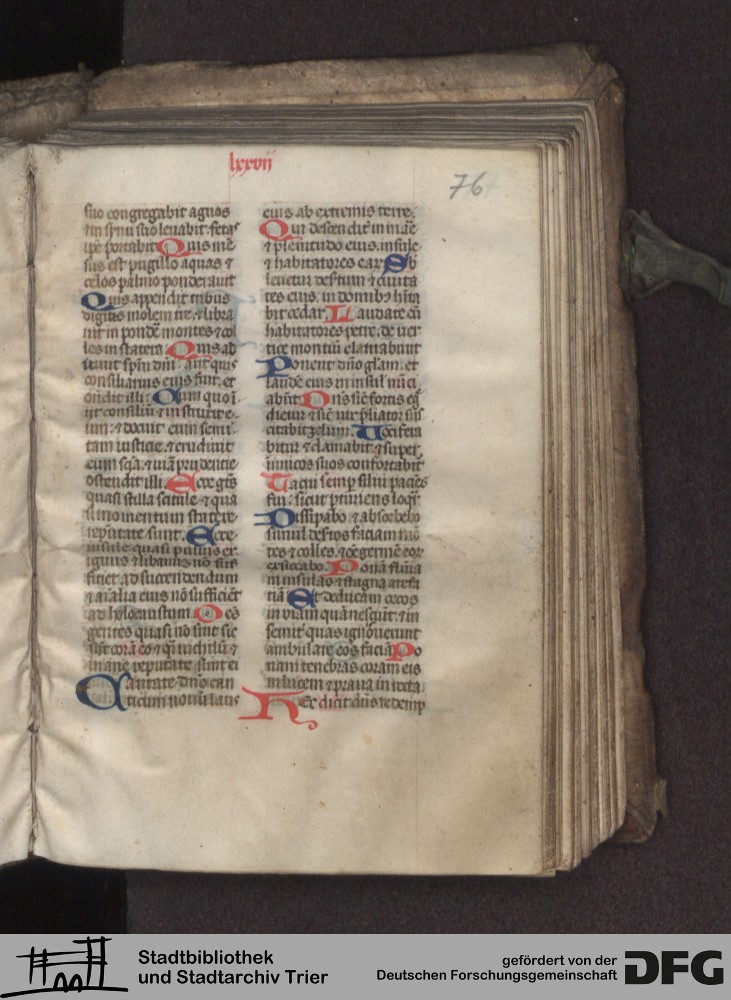 lxxvii
76
suo congregabit agnos
⁊ in sinu suo leuabit fetas
ipe portabit Quis me
sus est pugillo aquas ⁊
celos palmo ponderauit
Quis appendit tribus
digitis molem tre ⁊ libra
uit in pondē montes ⁊ col
les in statera Quis ad
iuuit spm dni aut quis
consiliarius eius fuit et
ondit illi Cum quo i
iit consiliū ⁊ instruxit
um ⁊ docuit eum semi
tam iusticie ⁊ erudiuit
eum sciā ⁊ uiā prudentie
ostendit illi Ecce gētes
quasi stilla scitule ⁊ qua
si momentum statere
reputate sunt Ecce
insule quasi puluis ex
iguus ⁊ libanus nō suf
ficiet ad succendendum
⁊ aīalia eius nō sufficiēt
ad holocaustum Oēs
gentes quasi nō sint sic
sūt corā eo ⁊ qi nichilū ⁊
inane reputate sunt ei
Cantate dno can
ticum nouū laus
eius ab extremis terre
Qui descenditis in mare
⁊ plenitudo eius insule
⁊ habitatores earū Sub
leuetur desertum ⁊ ciuita
tes eius in domibus hita
bit cedar Laudate
habitatores petre de uer
tice montiū clamabunt
Ponent dno glam et
laudē eius in insul nūci
abūt Dns sic fortis eg
dietur sic uir pliator sus
citabit zelum Uocifera
bitur ⁊ clamabit super
inimicos suos confortabit
Tacui semp silui paciēs
fui sicut pturiens loqr
Dissipabo ⁊ absorbebo
simul desertos faciam mō
tes ⁊ colles ⁊ oē germē eor
exsiccabo Ponā flūia
in insulas ⁊ stagna arefa
ciā Et deducam cecos
in viam quā nesciūt ⁊ in
semitis quas ignorauerunt
ambulare eos faciā Po
nam tenebras coram eis
in lucem ⁊ praua in recta
Hec dicit dūs redemp
Stadtbibliothek
und Stadtarchiv Trier
gefördert von der
Deutschen Forschungsgemeinschaft
DFG